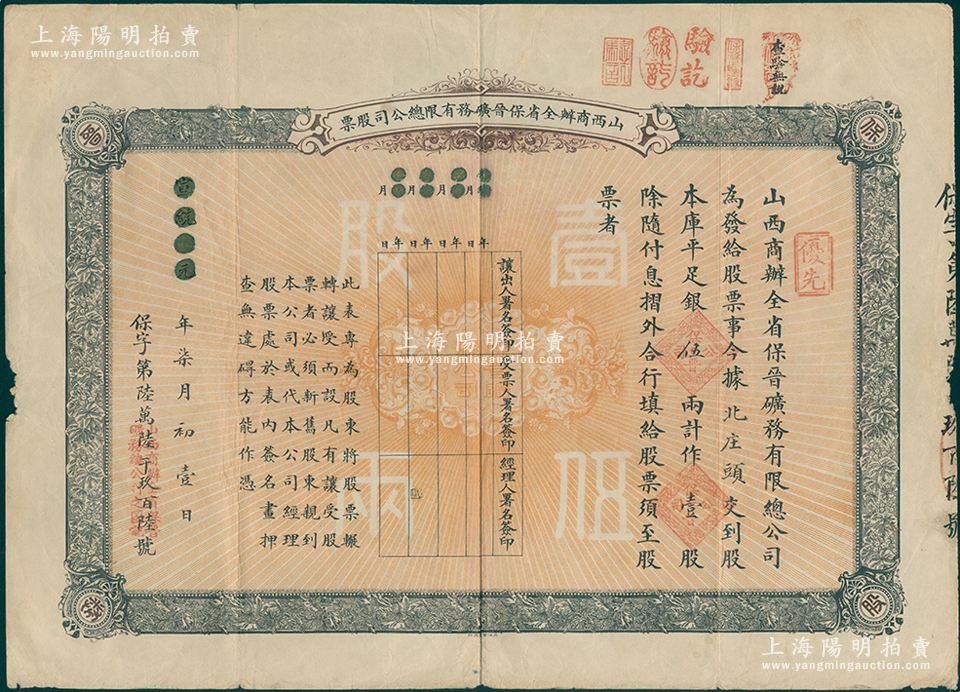 上海陽明拍賣
www.yangmingauction.com
上海陽明拍賣
www.yangmingauction.com
驗訖
查驗無訛
山西商辦全省保晉礦務有限總公司股票
保
晉
股
票
優先
山西商辦全省保晉礦務有限總公司
為發給股票事今據北庄頭交到股
本庫平足銀伍兩計作壹股
除隨付息摺外合行填給股票須至股
票者
壹股
伍兩
年月日
年月日
年月日
年月日
讓出人署名簽印
受票人署名簽印
經理人署名簽印
此表專為股東將股票輾
轉讓受而設凡有讓受股
票者必須新舊股東親到
本公司或代本公司經理
股票處於表內簽名畫押
查無違碍方能作憑
宣統元
年柒月初壹日
保字第陸萬陸千玖百陸號
上海陽明拍賣
www.yangmingauction.com
上海陽明拍賣
www.yangmingauction.com